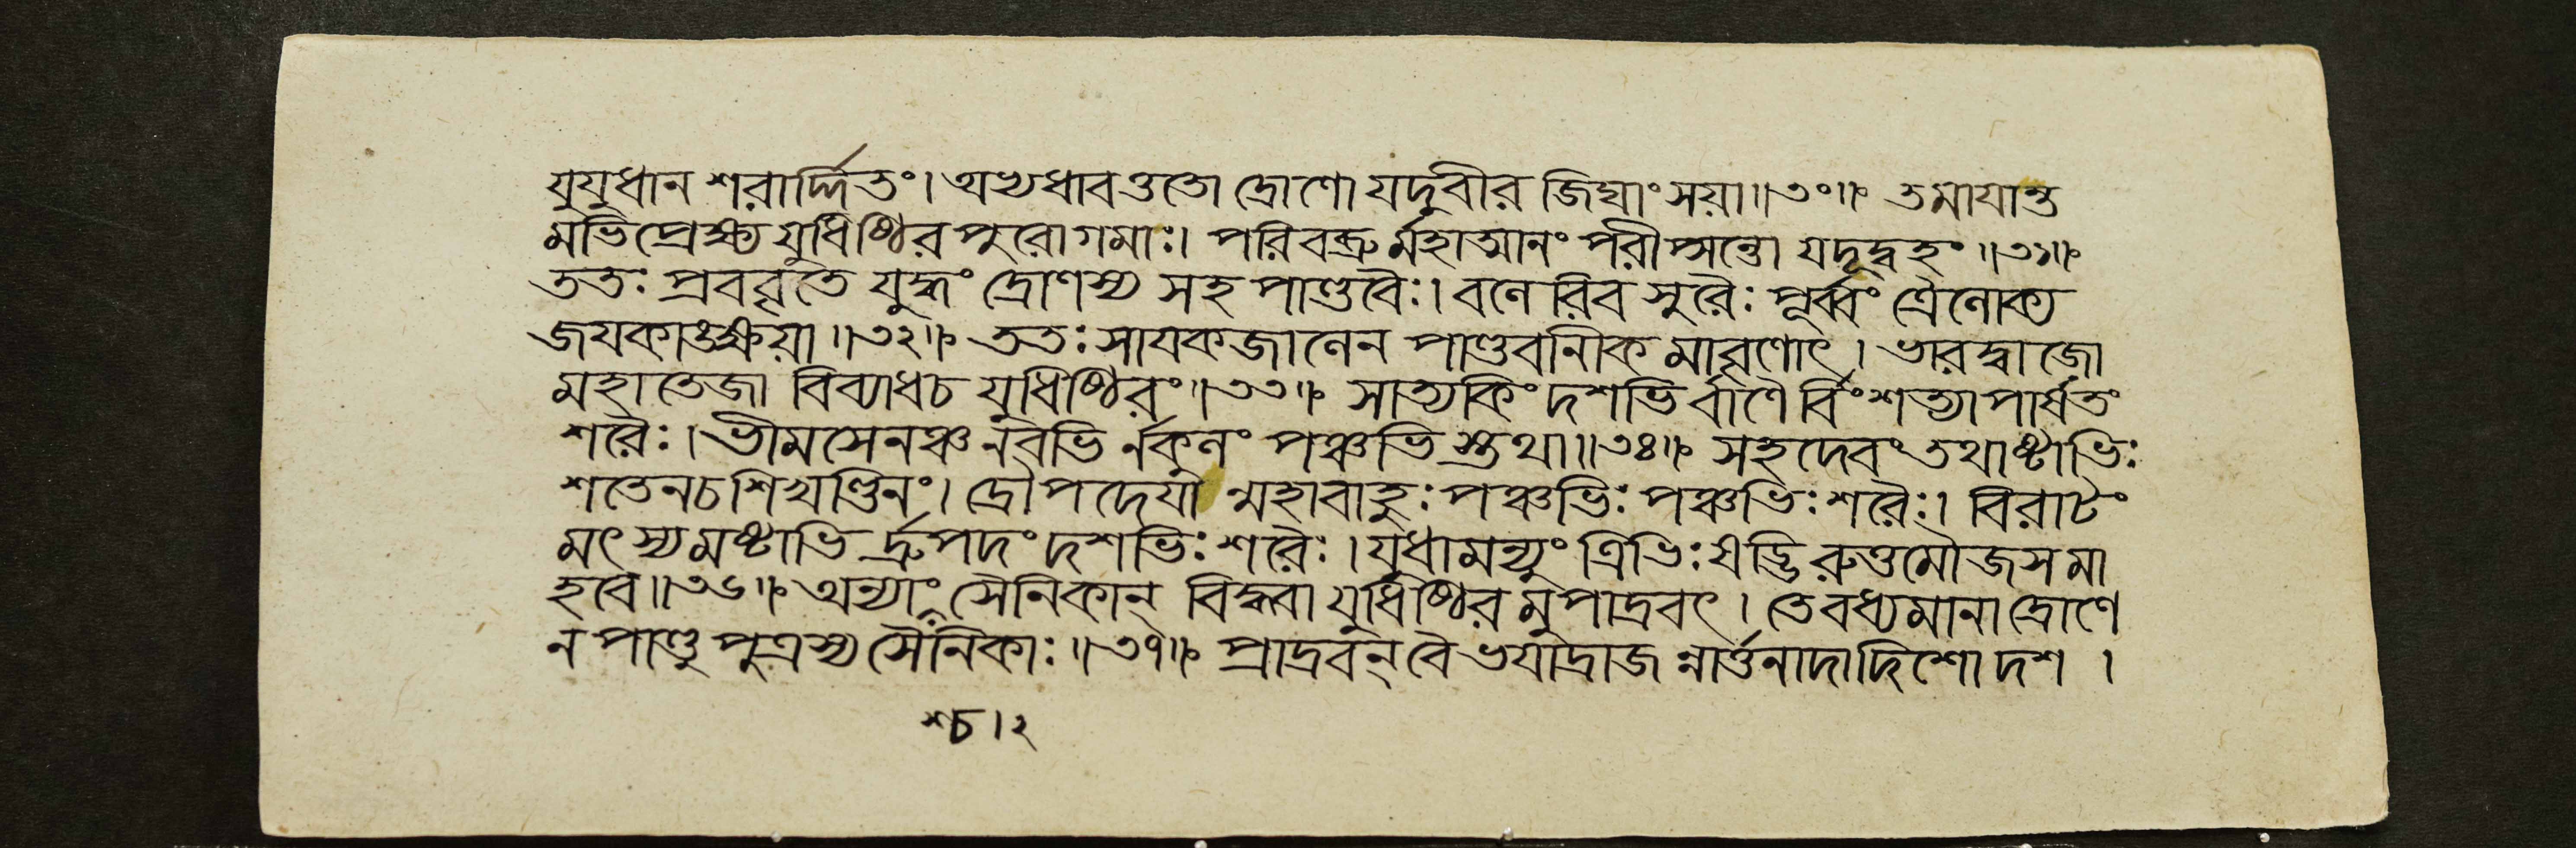 যুযুধান শরার্দ্দিতং। অভ্যধাবত্ততো দ্রোণো যদুবীর জিঘাংসয়া॥৩০॥ তমাযান্ত
মভিপ্রেক্ষ্য যুধিষ্ঠির পুরোগমাঃ। পরিবব্রু র্মহাত্মানং পরীপ্সন্তো যদূদ্বহং॥৩১॥
ততঃ প্রববৃতে যুদ্ধং দ্রোণস্য সহ পাণ্ডবৈঃ। বলেরিব সুরৈঃ পূর্ব্বং ত্রৈলোক্য
জযকাঙক্ষয়া॥৩২॥ ততঃ সাযকজালেন পাণ্ডবানীক মাবৃণোৎ। ভারদ্বাজো
মহাতেজা বিব্যাধচ যুধিষ্ঠিরং॥৩৩॥ সাত্যকিং দশভি র্বাণৈ র্বিংশত্যা পার্ষতং
শরৈঃ। ভীমসেনঞ্চ নবভি র্নকুলং পঞ্চভি স্তথা॥৩৪॥ সহদেবং তথাষ্টাভিঃ
শতেনচ শিখণ্ডিনং। দ্রৌপদেযা ন্মহাবাহুঃ পঞ্চভিঃ পঞ্চভিঃ শরৈঃ। বিরাটং
মৎস্যমষ্টাভি র্দ্রুপদং দশভিঃ শরৈঃ। যুধামন্যুং ত্রিভিঃ ষড্ভিরুত্তমৌজসমা
হবে॥৩৬॥ অন্যাংশ্চ সৈনিকান্ বিদ্ধবা যুধিষ্ঠির মুপাদ্রবৎ। তে বধ্যমানা দ্রোণে
ন পাণ্ডু পুত্রস্য সৈনিকাঃ॥৩৭॥ প্রাদ্রবন্ বৈ ভযাদ্রাজ ন্নার্ত্তনাদা দিশো দশ।
শ্চ।২